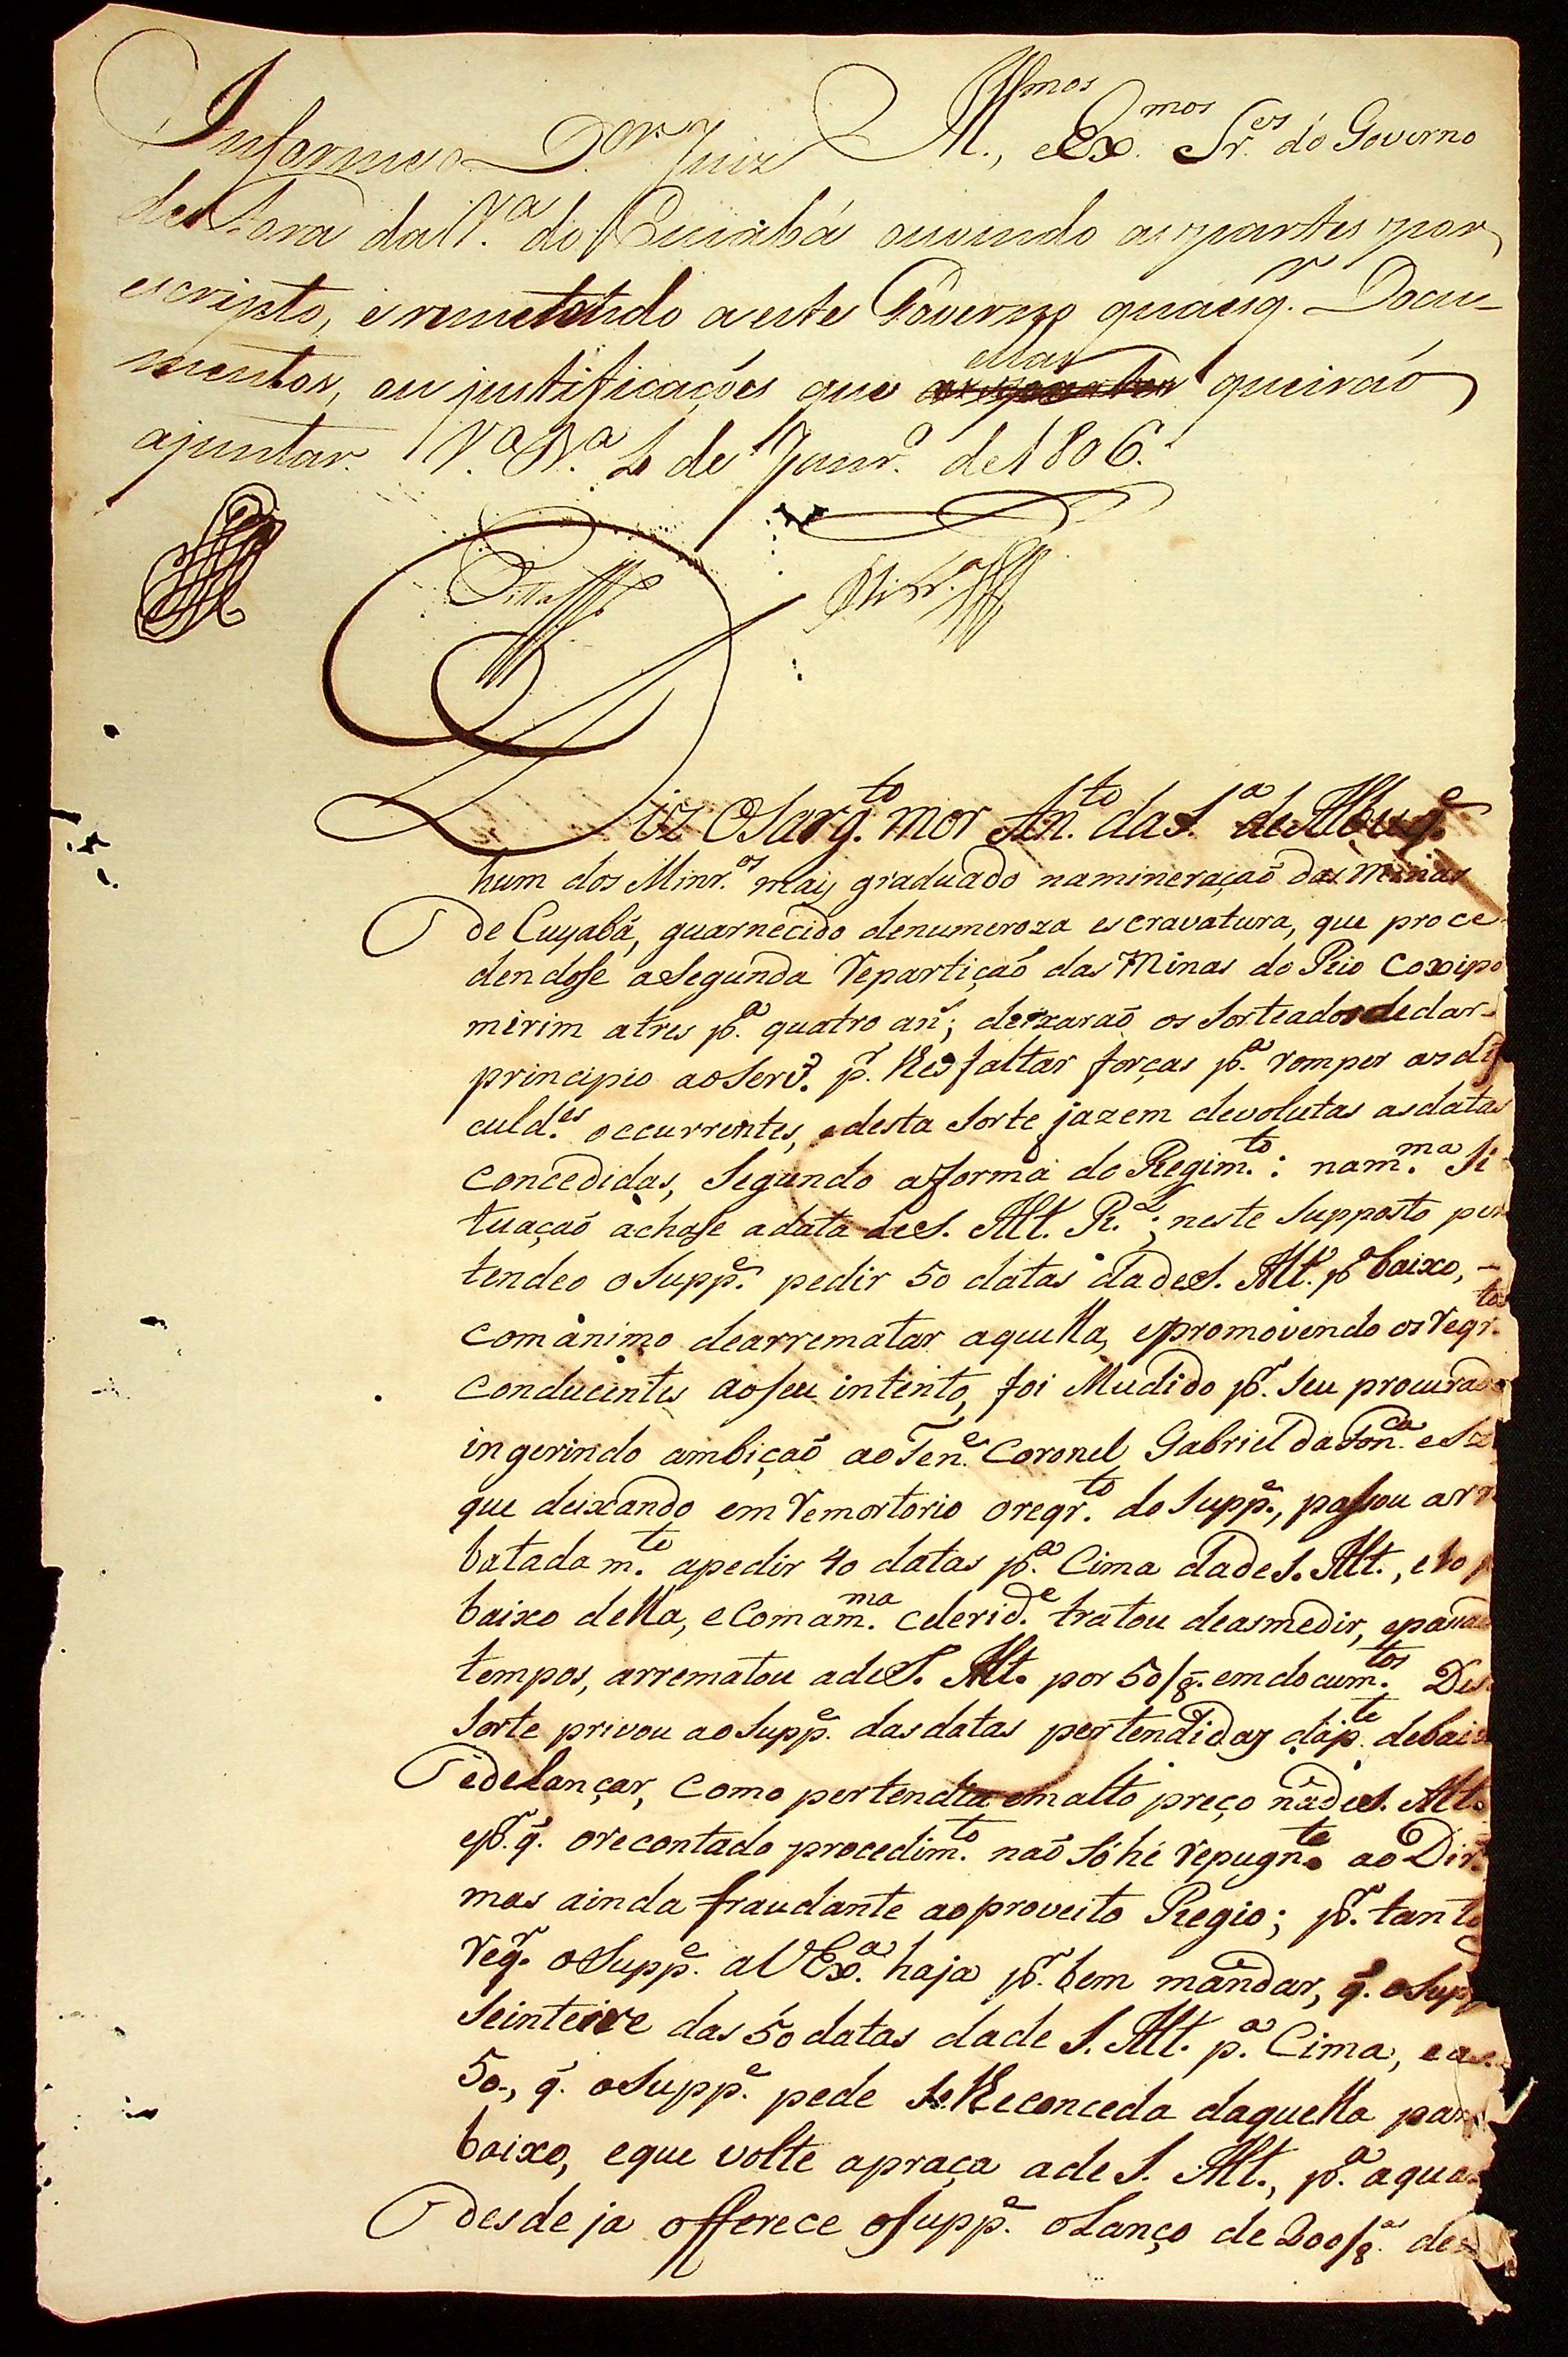 Ill.mos, e Ex.mos Sr.es do Governo
Informe o D.or Juiz
de Fora da V.a do Cuiabá ouvindo as partes por
escripto, e remettendo a este Governo quaesq.r Docu-
mentos, ou justificações que ellas queiraõ
ajuntar. V.a B.a 2 de Janr.o de 1806.
Diz O Sarg.to mor An.to da S.a de Albuq.e
hum dos Minr.os mais graduado na mineraçaõ das Minas
de Cuyabá, guarnecido de numeroza escravatura, que proce
dendose a Segunda repartiçaõ das Minas do Rio Coxipo
mirim a tres p.a quatro an.s; deixaraõ os Sorteados de dar
principio ao Serv.o p.r lhes faltar forças p.a romper as difi
culd.es occurrentes, e desta Sorte jazem devolutas as datas
concedidas, Segundo a forma do Regim.to: na m.ma Si
tuaçaõ achase a data de S. Alt. R.al; neste Supposto per
tendeo o Supp.e pedir 50 datas da de S. Alt. p.a baixo, -
com animo de arrematar aquella, e promovendo os reqr.tos
conducentes ao seu intento, foi illudido p.r Seu procurador
ingerindo ambiçaõ ao Ten.e Coronel Gabriel da Fon.ca e Sz
que deixando em remortorio o reqr.to do Supp.e, passou arr
batadam.te a pedir 40 datas p.a Cima da de S. Alt., e 10 p
baixo della, e Com a m.ma celerid.e tratou de as medir, e passad
tempos, arrematou a de S. Alt. por 50/8.as em docum.tos Des
Sorte privou ao Supp.e das datas pertendidas da p.te debaix
e de lançar, Como pertendia em alto preço na de S. Alt.
e p.r q. o recontado procedim.to naõ Só hé repugn.te ao Dir.
mas ainda fraudante ao proveito Regio; p.r tanto
req.r o Supp.e a V Ex.a haja p.r bem mandar, q. o Supp
Se inteire das 50 datas da de S. Alt. p.a Cima, e as
50, q. o Supp.e pede Se lhe conceda daquella para
baixo, e que volte a praça a de S. Alt., p.a a qua
desde ja offerece o Supp.e o Lanço de 200/8.as de